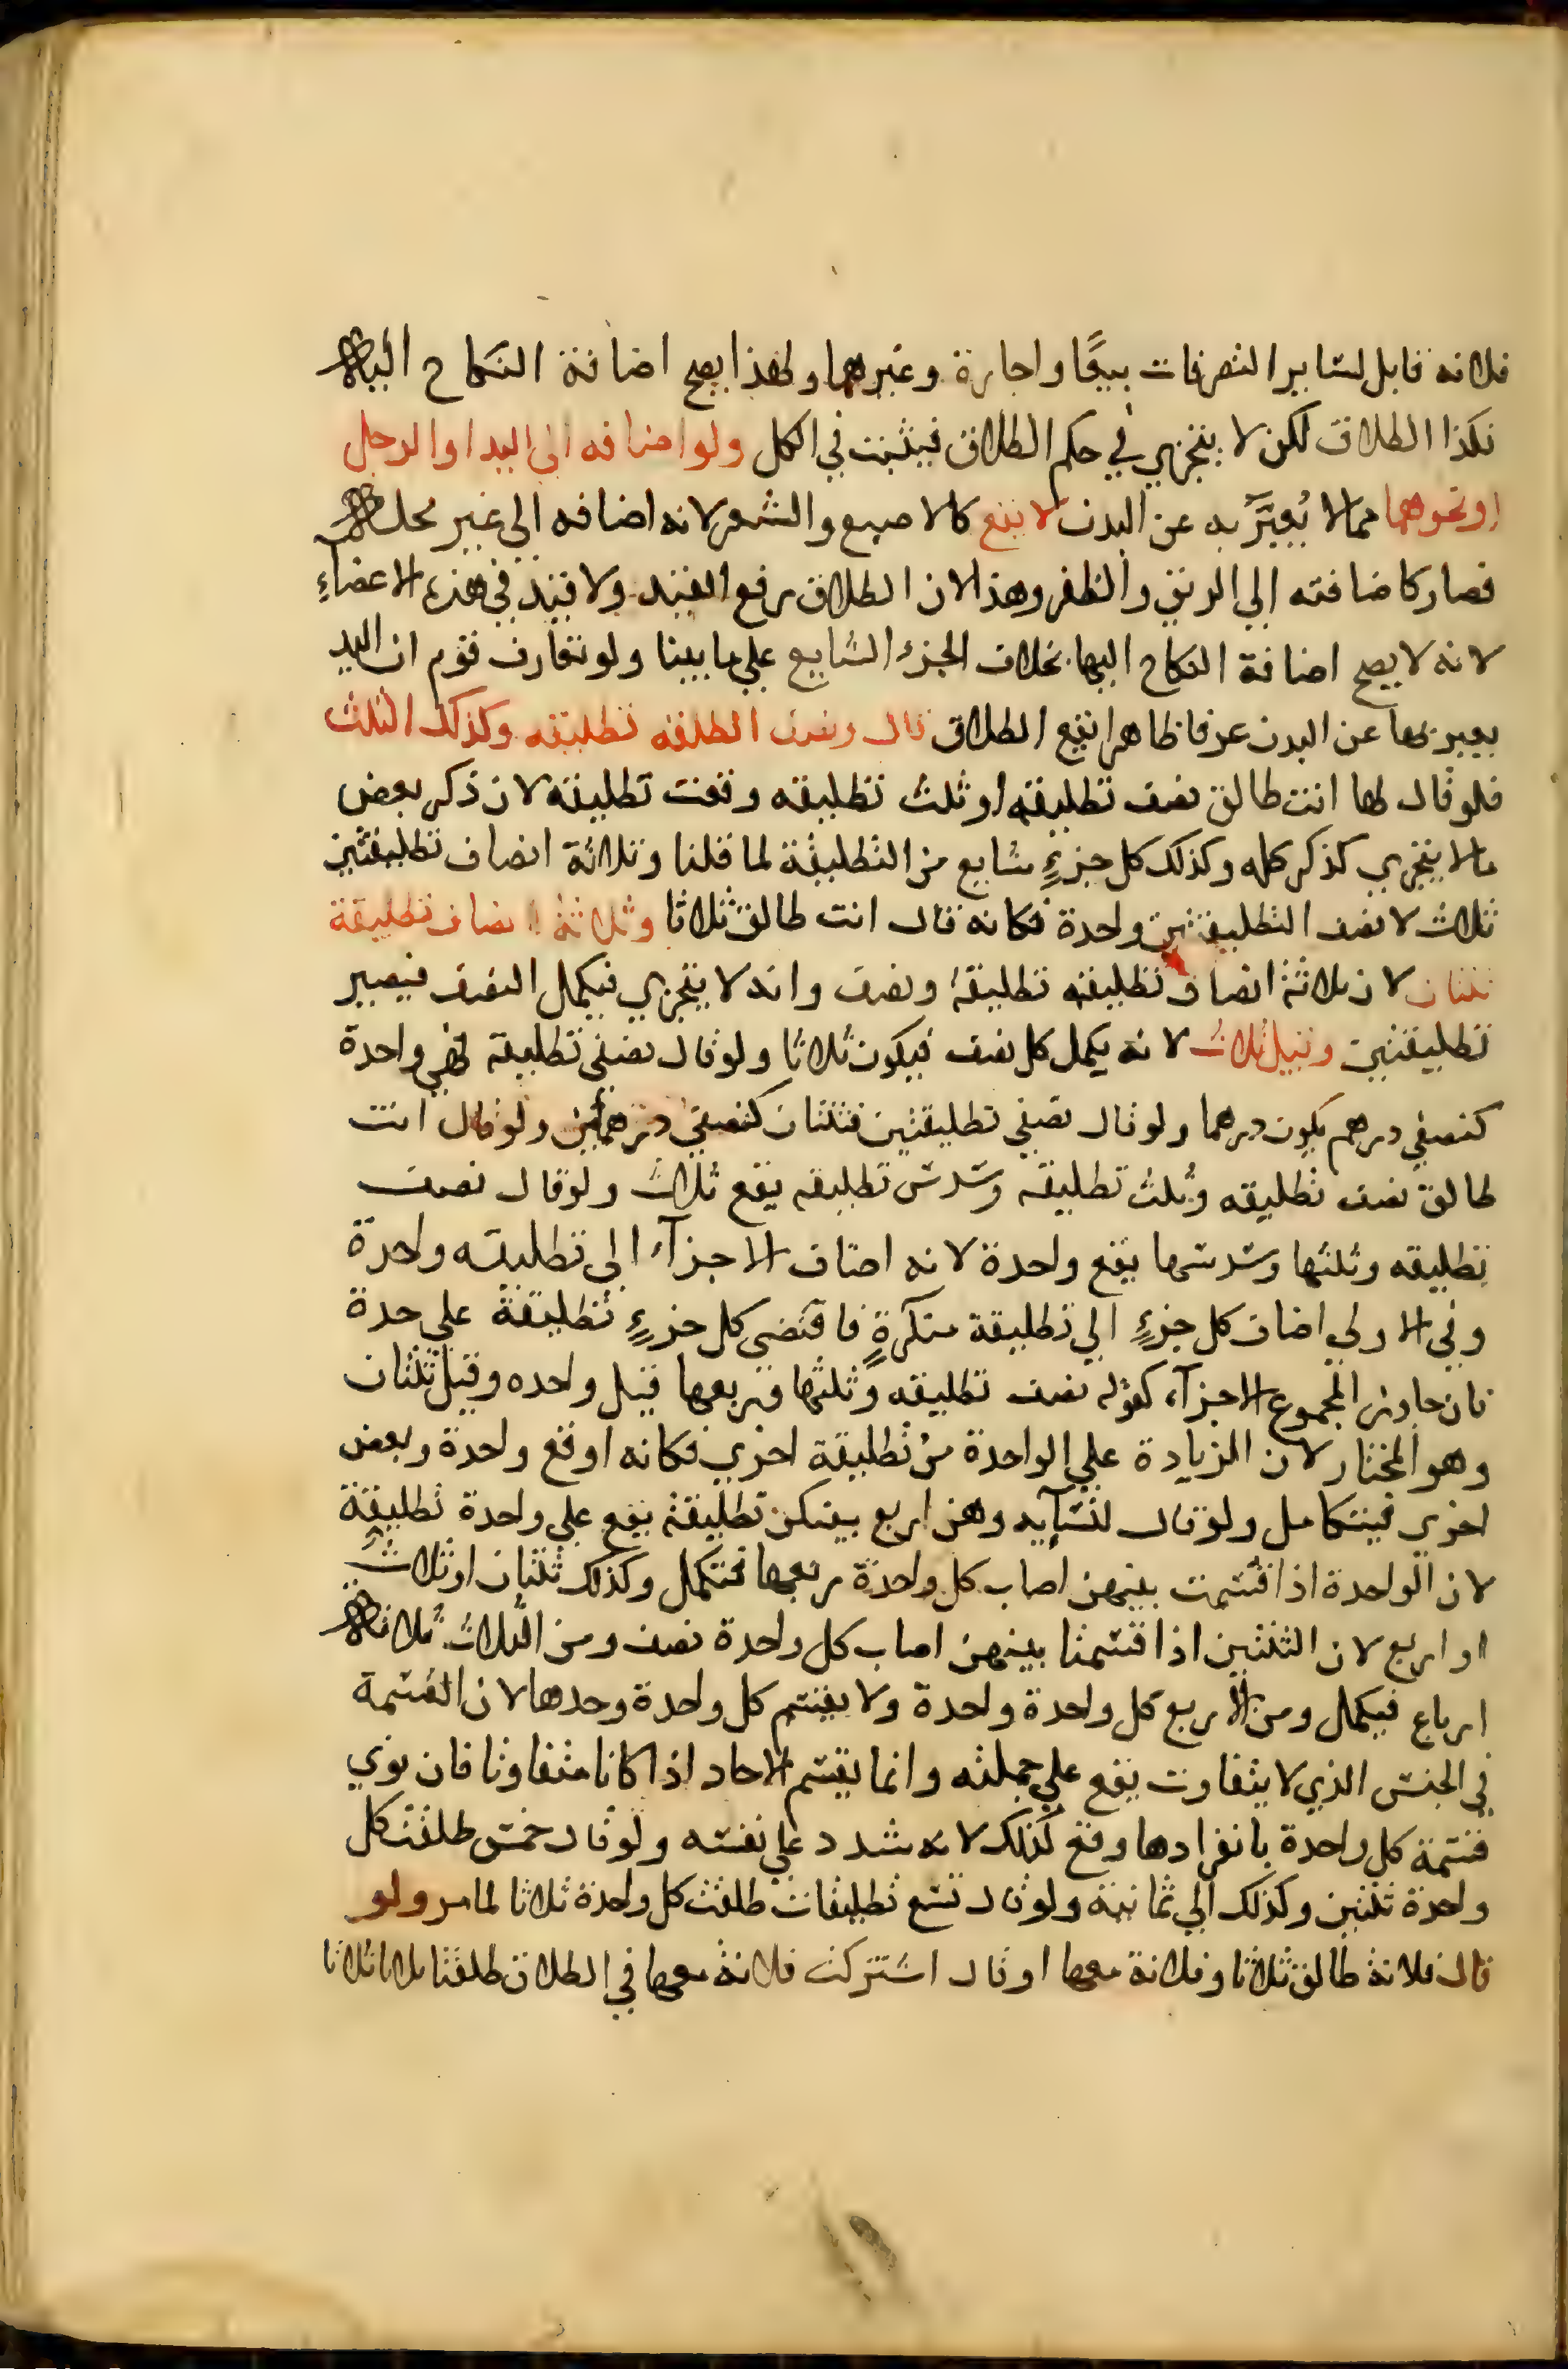 فلانه قابل لسائر التصرفات بيعًا واجارة وغيرهما ولهذا يصح اضافة النكاح اليه
فكذا الطلاق لكن لا يتجزي في حكم الطلاق فيثبت في الكل ولو اضافه الي اليد او الرجل
او نحوهما مما لا يُعبَّرُ به عن البدن لا يقع كالاصبع والشعر لانه اضافه الي غير محله
فصار كاضافته الي الريق والظفر وهذا لان الطلاق رفع القيد ولا قيد في هذه الاعضاءِ
لانه لا يصح اضافة النكاح اليها بخلاف الجزء الشايع علي ما بينا ولو تعارف قوم ان اليد
يعبر بها عن البدن عرفا ظاهرا يقع الطلاق قال ونصف الطلقه تطليقه وكذلك الثلث
فلو قال لها انت طالق نصف تطليقه او ثلث تطليقه وقعت تطليقه لان ذكر بعض
ما لا يتجزي كذكر كله وكذلك كل جزءٍ شايع من التطليقة لما قلنا وثلاثة انصاف تطليقتين
ثلاث لان نصف التطليقتين واحدة فكانه قال انت طالق ثلاثا وثلاثة انصاف تطليقة
ثنتان لان ثلاثة انصاف تطليقه تطليقة ونصف وانه لا يتجزي فيكمل النصف فيصير
تطليقتين وقيل ثلاث لانه يكمل كل نصف فيكون ثلاثا ولو قال نصفي تطليقة فهي واحدة
كنصفي درهم يكون درهما ولو قال نصفي تطليقتين فثنتان كنصفي درهمين ولو قال انت
طالق نصف تطليقه وثلث تطليقة وسدس تطليقه يقع ثلاث ولو قال نصف
تطليقه وثلثها وسدسها يقع واحدة لانه اضاف الاجزآء الي تطليقه واحدة
وفي الاولي اضاف كل جزءٍ الي تطليقة منكرةٍ فاقتضي كل جزءٍ تطليقة علي حدة
فان جاوز المجموع الاجزآء كقوله نصف تطليقه وثلثها وربعها قيل واحده وقيل ثنتان
وهو المختار لان الزيادة علي الواحدة من تطليقة اخري فكانه اوقع واحدة وبعض
اخري فيتكامل ولو قال لنسآيه وهن اربع بينكن تطليقة يقع علي واحدة تطليقة
لان الواحدة اذا قسمت بينهن اصاب كل واحدة ربعها فتكمل وكذلك ثنتان او ثلاث
او اربع لان الثنتين اذا قسمتا بينهن اصاب كل واحدة نصف ومن الثلاث ثلاثة
ارباع فيكمل ومن الاربع كل واحدة واحدة ولا يقسم كل واحدة وحدها لان القسمة
في الجنس الذي لا يتفاوت يقع علي جملته وانما يقسم الاحاد اذا كانا متفاوتا فان نوي
قسمة كل واحدة بانفرادها وقع كذلك لانه شدد علي نفسه ولو قال خمس طلقت كل
واحدة ثنتين وكذلك الي ثمانية ولو قال تسع تطليقات طلقت كل واحدة ثلاثا لما مر ولو
قال فلانة طالق ثلاثا وفلانة معها او قال اشتركت فلانة معها في الطلاق طلقتا ثلاثا ثلاثا